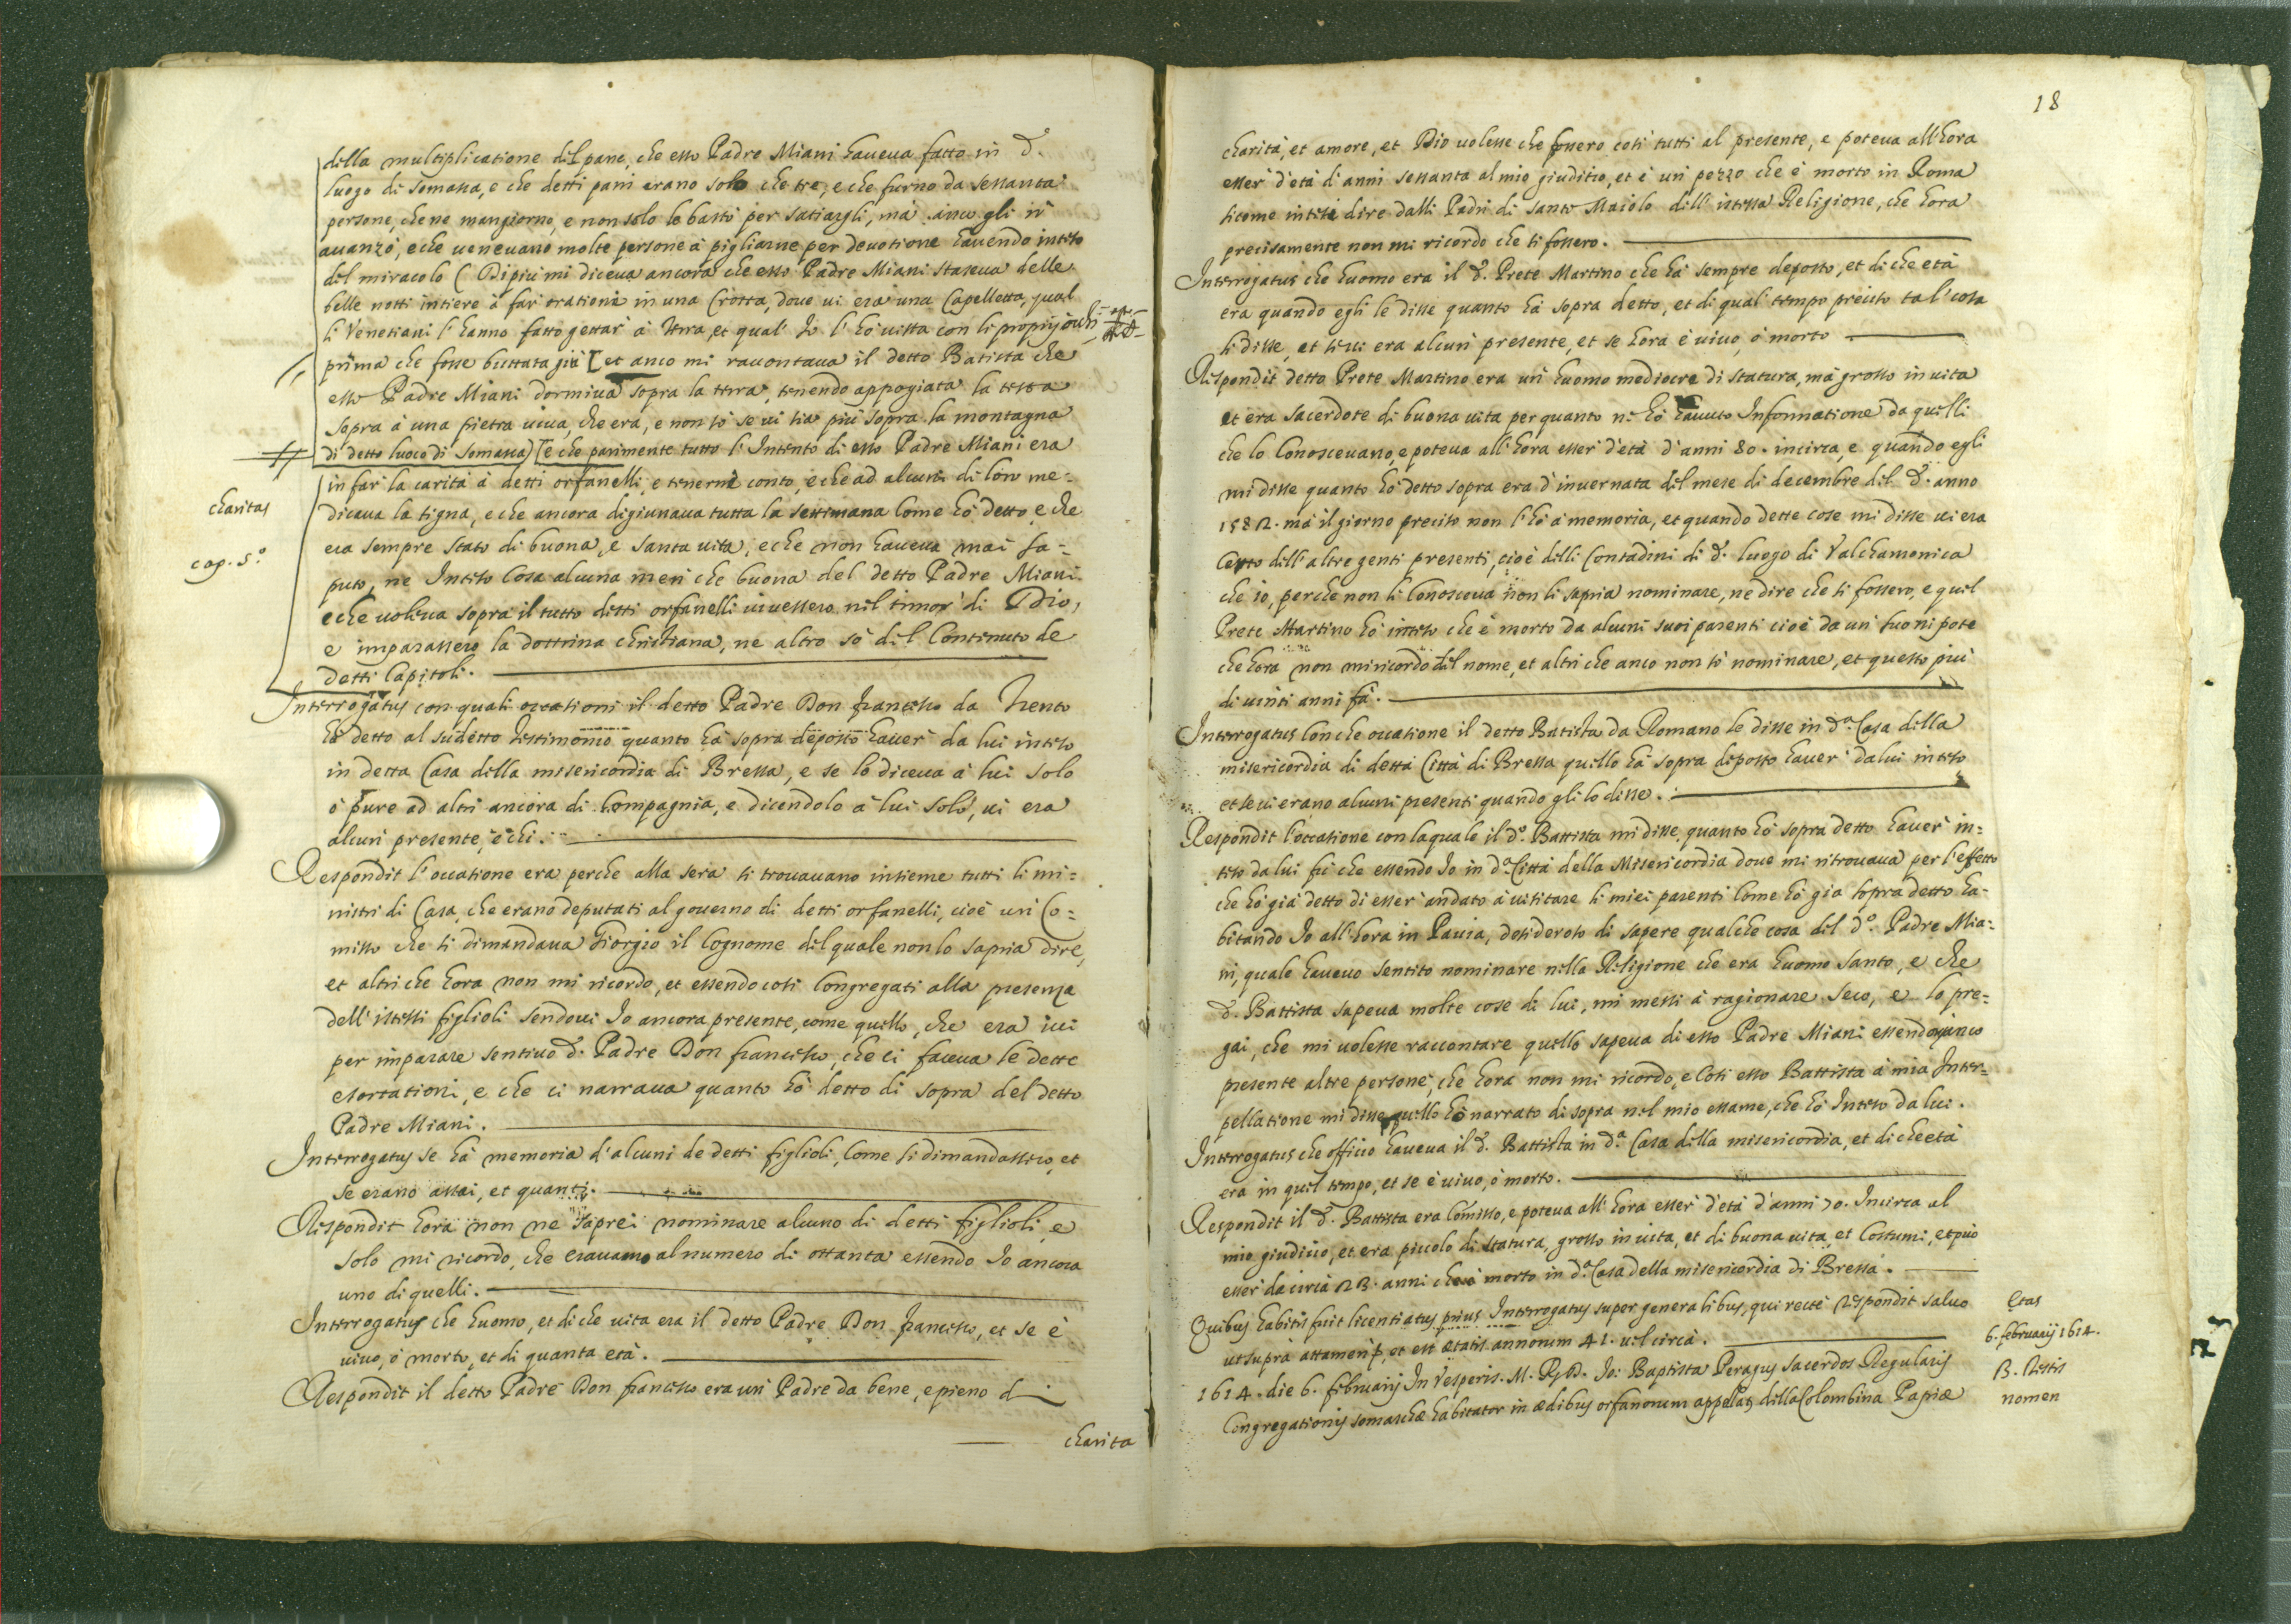 della multiplicatione del pane, che esso Padre Miani haueua fatto in d.°
luogo di Somasca, e che detti pani erano solo che tre, e che furno da sessanta
persone, che ne mangiorno, e non solo le bastò per satiargli, mà anco gli n'
auanzò, e che ueneuano molte persone à pigliarne per deuotione hauendo inteso
del miracolo ( Di più mi diceua ancora che esso Padre Miani staseua delle
belle notti intiere à far orationi in una Crotta, doue ui era una Capelletta, qual
li Venetiani l'hanno fatto gettar à terra, et qual Io l'hò uista con li proprij ochi
prima che fosse buttata giù [ et anco mi racontaua il detto Batista che
esso Padre Miani dormiua sopra la terra, tenendo appogiata la testa
sopra à una pietra uiua, che era, e non sò se ui sia più sopra la montagna
di detto luoco di Somasca) [e che parimente tutto l'Intento di esso Padre Miani era
in far la carità à detti orfanelli, e tenerne conto, e che ad alcuni di loro me=
charitas
dicaua la tigna, e che ancora digiunaua tutta la settimana come hò detto, e che
era sempre stato di buona, e santa uita, e che non haueua mai sa=
cap. 5.°
puto, ne Inteso cosa alcuna men che buona del detto Padre Miani
e che uoleua sopra il tutto detti orfanelli uiuessero nel timor di Dio,
e imparassero la dottrina christiana, ne altro sò del Contenuto de
detti Capitoli.
Interrogatus con quali occationi il detto Padre Don francesco da Trento
hà detto al sudetto testimonio quanto hà sopra deposto hauer da lui inteso
in detta Casa della misericordia di Bressa, e se lo diceua à lui solo
ò pure ad altri ancora di compagnia, e dicendolo à lui solo, ui era
alcun presente, e chi.
Respondit l'occatione era perche alla sera si trouauano insieme tutti li mi=
nistri di Casa, che erano deputati al gouerno di detti orfanelli, cioè un Co=
misso che si dimandaua Giorgio il Cognome del quale non lo sapria dire,
et altri che hora non mi ricordo, et essendo così Congregati alla presenza
dell'istessi figlioli sendoui Io ancora presente, come quello, che era iui
per imparare sentiuo d.° Padre Don francesco, che ci faceua le dette
esortationi, e che ci narraua quanto hò detto di sopra del detto
Padre Miani.
Interrogatus se hà memoria d'alcuni de detti figlioli, come si dimandassero, et
se erano assai, et quanti.
Respondit hora non ne saprei nominare alcuno di detti figlioli, e
solo mi ricordo, che erauamo al numero di ottanta essendo Io ancora
uno di quelli.
Interrogatus che huomo, et di che uita era il detto Padre Don francesco, et se è
uiuo, ò morto, et di quanta età.
Respondit il detto Padre Don francesco era un Padre da bene, e pieno di
charita
18
charità, et amore, et Dio uolesse che fossero così tutti al presente, e poteua all'hora
esser d'età d'anni sessanta al mio giuditio, et è un pezzo che è morto in Roma
sicome intesi dire dalli Padri di santo Maiolo dell'istessa Religione, che hora
precisamente non mi ricordo che si fossero.
Interrogatus che huomo era il d.° Prete Martino che hà sempre deposto, et di che età
era quando egli le disse quanto hà sopra detto, et di qual tempo preciso tal cosa
li disse, et se ui era alcun presente, et se hora è uiuo, ò morto
Respondit detto Prete Martino era un huomo mediocre di statura, mà grosso in uita
et era sacerdote di buona uita per quanto n'hò hauuto Informatione da quelli
che lo Conosceuano, e poteua all'hora esser d'età d'anni 80. incirca, e quando egli
mi disse quanto hò detto sopra era d'inuernata del mese di decembre del d.° anno
1582. mà il giorno preciso non l'hò à memoria, et quando dette cose mi disse ui era
Certo dell'altre genti presenti, cioè delli Contadini di d.° luogo di Valchamonica
che io, perche non li Conosceua non li sapria nominare, ne dire che si fossero, e quel
Prete Martino hò inteso che è morto da alcuni suoi parenti cioè da un suo nipote
che hora non mi ricordo del nome, et altri che anco non sò nominare, et questo più
di uinti anni fà.
Interrogatus con che occatione il detto Batista da Romano le disse in d.a Casa della
misericordia di detta Città di Bressa quello hà sopra deposto hauer da lui inteso
et se ui erano alcuni presenti quando gli lo disse.
Respondit l'occatione con laquale il d.° Battista mi disse quanto hò sopra detto hauer in=
teso da lui fù che essendo Io in d.a Città della Misericordia doue mi ritrouaua per l'effetto
che hò già detto di esser andato à uisitare li miei parenti come hò già sopra detto ha=
bitando Io all'hora in Pauia, desideroso di sapere qualche cosa del d.° Padre Mia=
ni, quale haueuo sentito nominare nella Religione che era huomo santo, e che
d.° Battista sapeua molte cose di lui, mi messi à ragionare seco, e lo pre=
gai, che mi uolesse raccontare quello sapeua di esso Padre Miani essendo anco
presente altre persone, che hora non mi ricordo, e Così esso Battista à mia Inter=
pellatione mi disse quello hò narrato di sopra nel mio essame, che hò Inteso da lui.
Interrogatus che officio haueua il d.° Battista in d.a Casa della misericordia, et di che età
era in quel tempo, et se è uiuo, ò morto.
Respondit il d.° Battista era Comisso, e poteua all'hora esser d'età d'anni 70. Incirca al
mio giudicio, et era piccolo di statura, grosso in uita, et di buona uita, et Costumi, et può
esser da circa 23. anni che è morto in d.a Casa della misericordia di Bressa.
Quibus habitis fuit licentiatus prius Interrogatus super generalibus, qui rectè respondit saluo
Etas
ut suprà attamen, et est ætatis annorum 41. uel circà.
6. februarij 1614.
1614. die 6. februarij In Vesperis. M. R. D. Io: Baptista Peragus Sacerdos Regularis
3. Testis
Congregationis somaschæ habitator in ædibus orfanorum della Colombina Papiæ
nomen